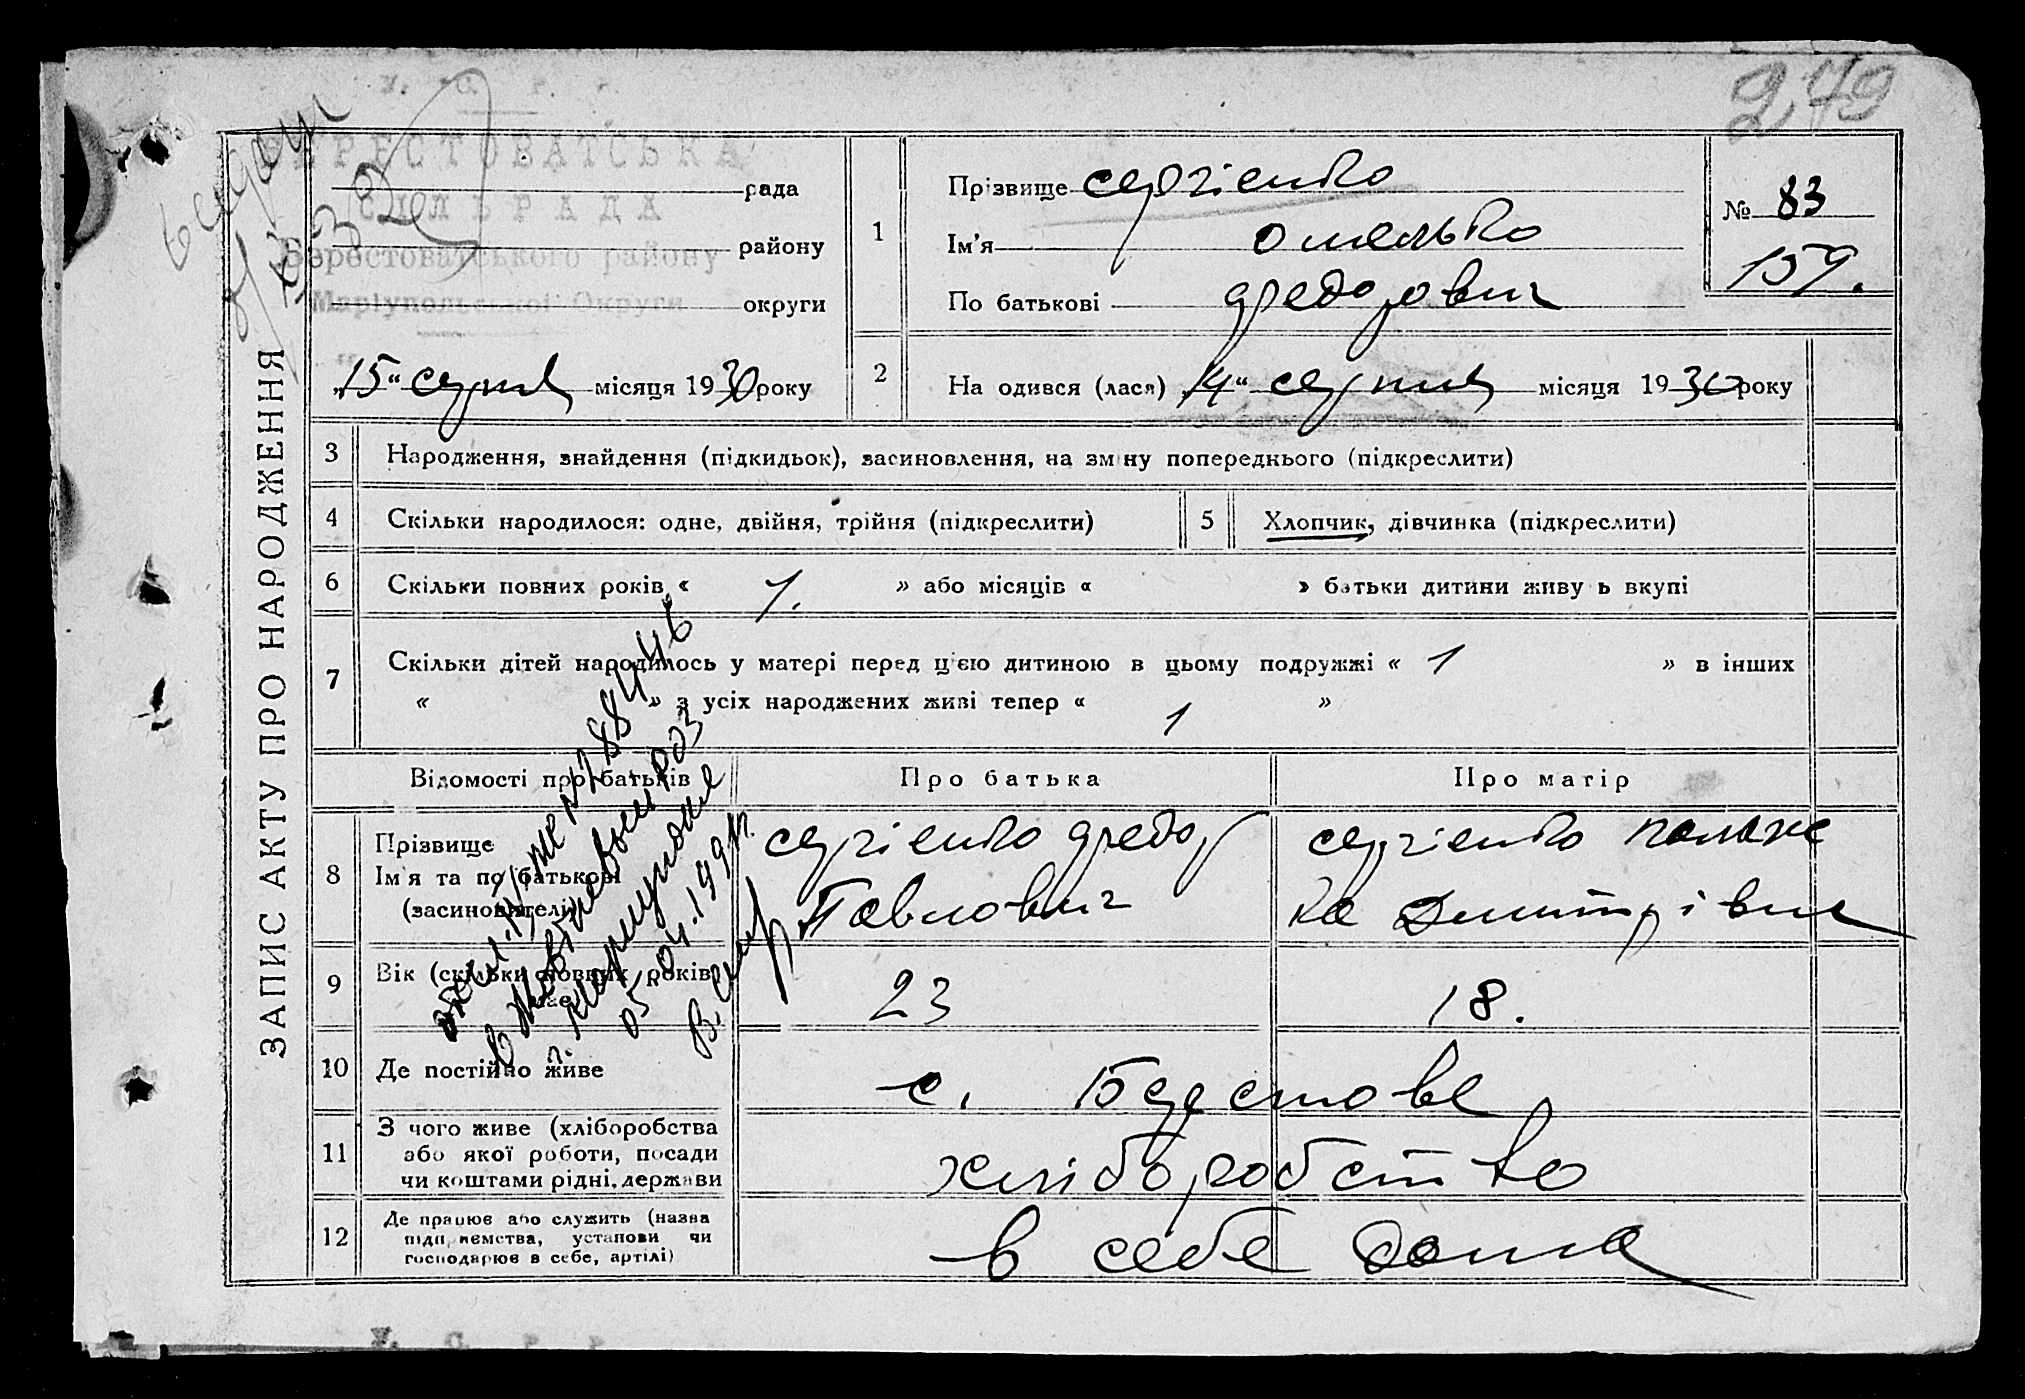 279
БЕРЕСТОВАТСЬКА
рада
СІЛЬРАДА
району
Берестоватського району
Маріупольської Округи
округи
„15“ серпня місяця 1930 року
1
Прізвище Сергієнко
Ім'я Омелько
По батькові Федорович
№ 83
159.
2
На одився (лася) „14“ серпня місяця 1930 року
ЗАПИС АКТУ ПРО НАРОДЖЕННЯ
3 Народження, знайдення (підкидьок), засиновлення, на зм ну попереднього (підкреслити)
4 Скільки народилося: одне, двійня, трійня (підкреслити)
5 Хлопчик, дівчинка (підкреслити)
6 Скільки повних років « 1. » або місяців « » батьки дитини живу ь вкупі
7 Скільки дітей народилось у матері перед цією дитиною в цьому подружжі « 1 » в інших
« » з усіх народжених живі тепер « 1 »
Відомості про батьків
Про батька
Про матір
8 Прізвище
Ім'я та по батькові
(засиновителі)
Сергієнко Федор
Павлович
Сергієнко Палаж
ка Дмитрівна
9 Вік (скільки повних років
має)
23
18.
10 Де постійно живе
с. Берестове
11 З чого живе (хліборобства
або якої роботи, посади
чи коштами рідні, держави
хліборобство
12 Де працює або служить (назва
підприємства, установи чи
господарює в себе, артілі)
в себе дома
в Жовтневом РОЗ
г. Мариуполя
05.04.1991г.